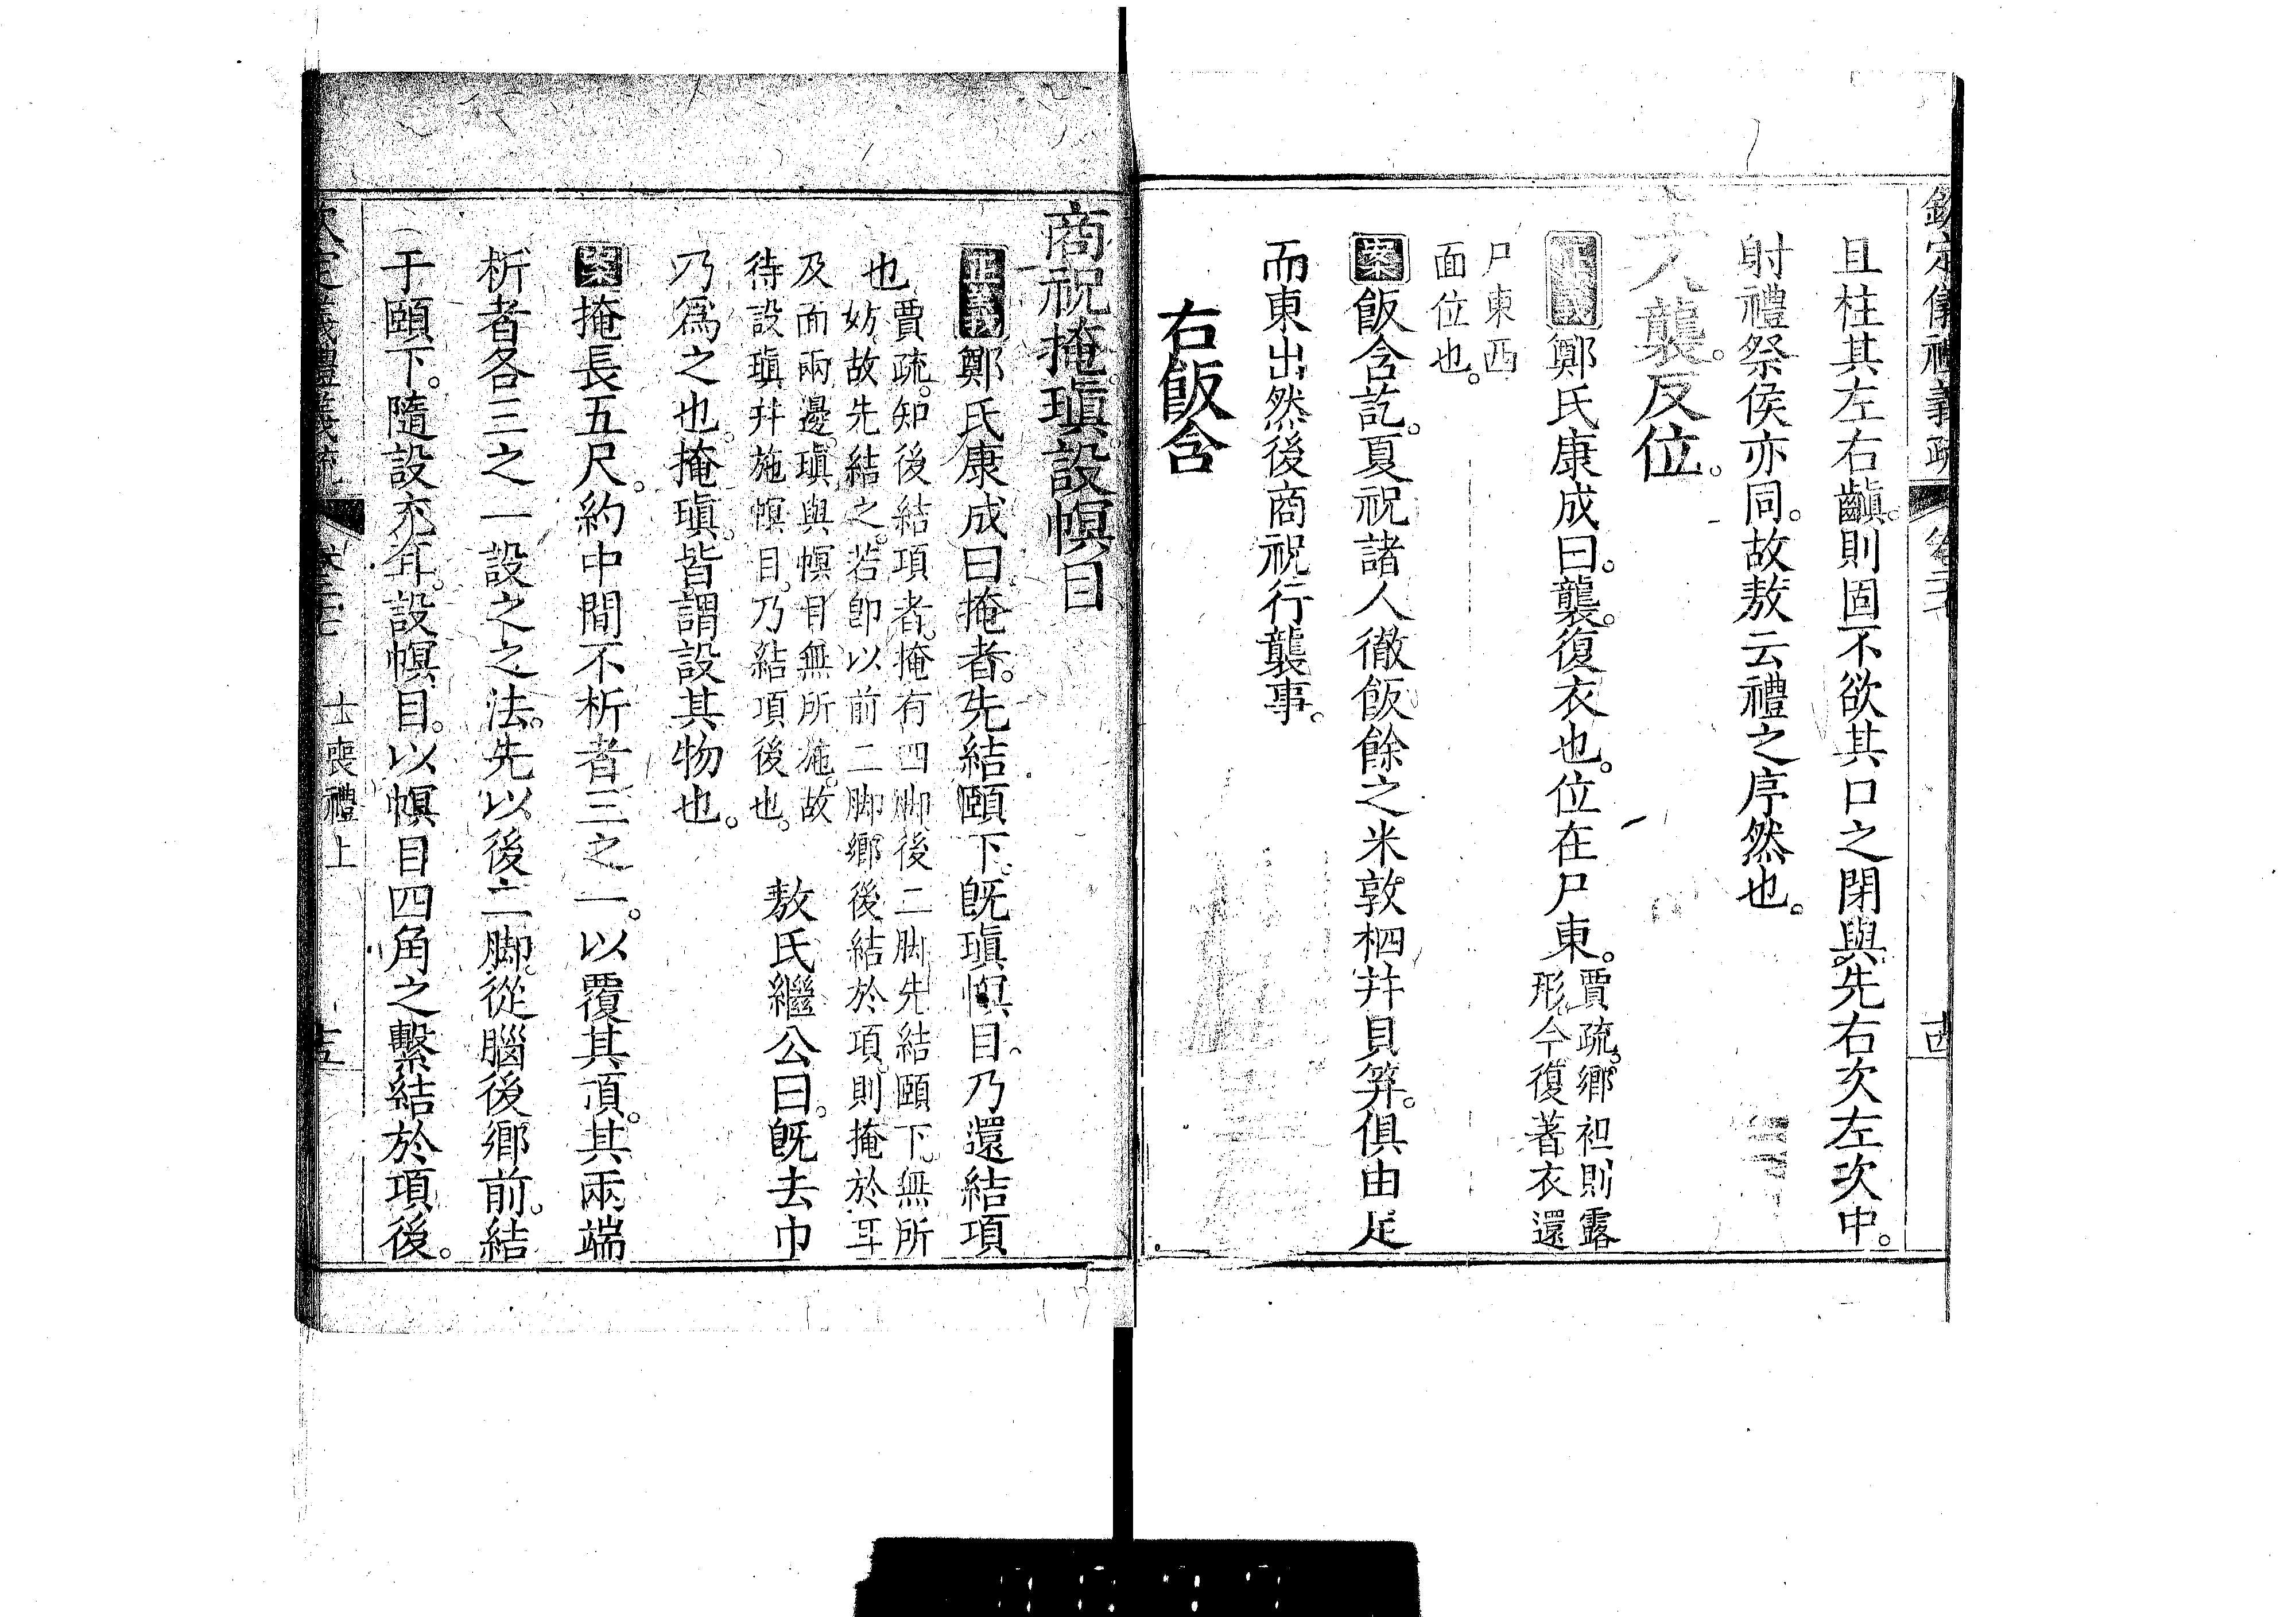 欽定儀禮義疏　卷二十七　十四
且柱其左右齻。則固不欲其口之閉與。先右次左次中。
射禮祭侯亦同。故敖云禮之序然也。
主人襲。反位。
正義鄭氏康成曰。襲。復衣也。位在尸東。
賈疏。鄉袒則露
形。今復著衣。還
尸東西
面位也。
案飯含訖。夏祝諸人徹飯餘之米。敦柶幷貝笲。俱由足
而東出。然後商祝行襲事。
右飯含
商祝掩。瑱。設幎目
正義鄭氏康成曰。掩者。先結頤下。旣瑱幎目。乃還結項
也
賈疏。知後結項者。掩有四脚。後二脚先結頤下。無所
妨。故先結之。若卽以前二脚鄉後結於項。則掩於耳
及面兩邊。瑱與幎目無所施。故
待設瑱幷施幎目。乃結項後也。
敖氏繼公曰。旣去巾
乃爲之也。掩瑱。皆謂設其物也。
案掩長五尺。約中間不析者三之一。以覆其頂。其兩端
析者各三之一。設之之法。先以後二脚。從腦後鄉前。結
于頤下。隨設充耳。設幎目。以幎目四角之繫結於項後。
欽定義禮義疏　卷二十七　士喪禮上　十五